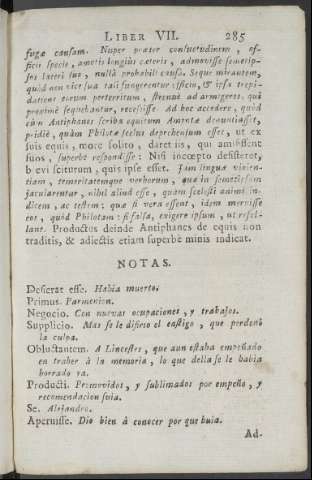 LIBER VII. 285
fugæ causam. Nuper præter consuetudinem, of-
ficii specie, amotis longiùs cæteris, admovisse semetip-
sos lateri suo, nullâ probabili causâ. Seque mirantem,
quòd non vice sua tali fungerentur officio, & ipsa trepi-
datione eorum perterritum, strenuè ad armigeros, qui
proximè sequebantur, recessisse. Ad hoc accedere, quòd
cùm Antiphanes scriba equitum Amyntæ denuntiasset,
pridiè, quàm Philotæ scelus deprehensum esset, ut ex
suis equis, more solito, daret iis, qui amisissent
suos, superbè respondisse: Nisi incœpto desisteret,
brevi sciturum, quis ipse esset. Jam linguæ violen-
tiam, temeritatemque verborum, quæ in semetipsum
jacularentur, nihil aliud esse, quàm scelesti animi in-
dicem, ac testem: quæ si vera essent, idem meruisse
eos, quòd Philotam: si falsa, exigere ipsum, ut refel-
lant. Productus deinde Antiphanes de equis non
traditis, & adjectis etiam superbè minis indicat.
NOTAS.
Desierat esse. Habia muerto.
Primus. Parmenion.
Negocio. Con nuevas ocupaciones, y trabajos.
Supplicio. Mas se le difirio el castigo, que perdonò
la culpa.
Obluctantem. A Lincestes, que aun estaba empeñado
en traher à la memoria, lo que della se le babia
borrado ya.
Producti. Promovidos, y sublimados por empeño, y
recomendacion suia.
Se. Alejandro.
Aperuisse. Dio bien à conocer por que huia.
Ad-